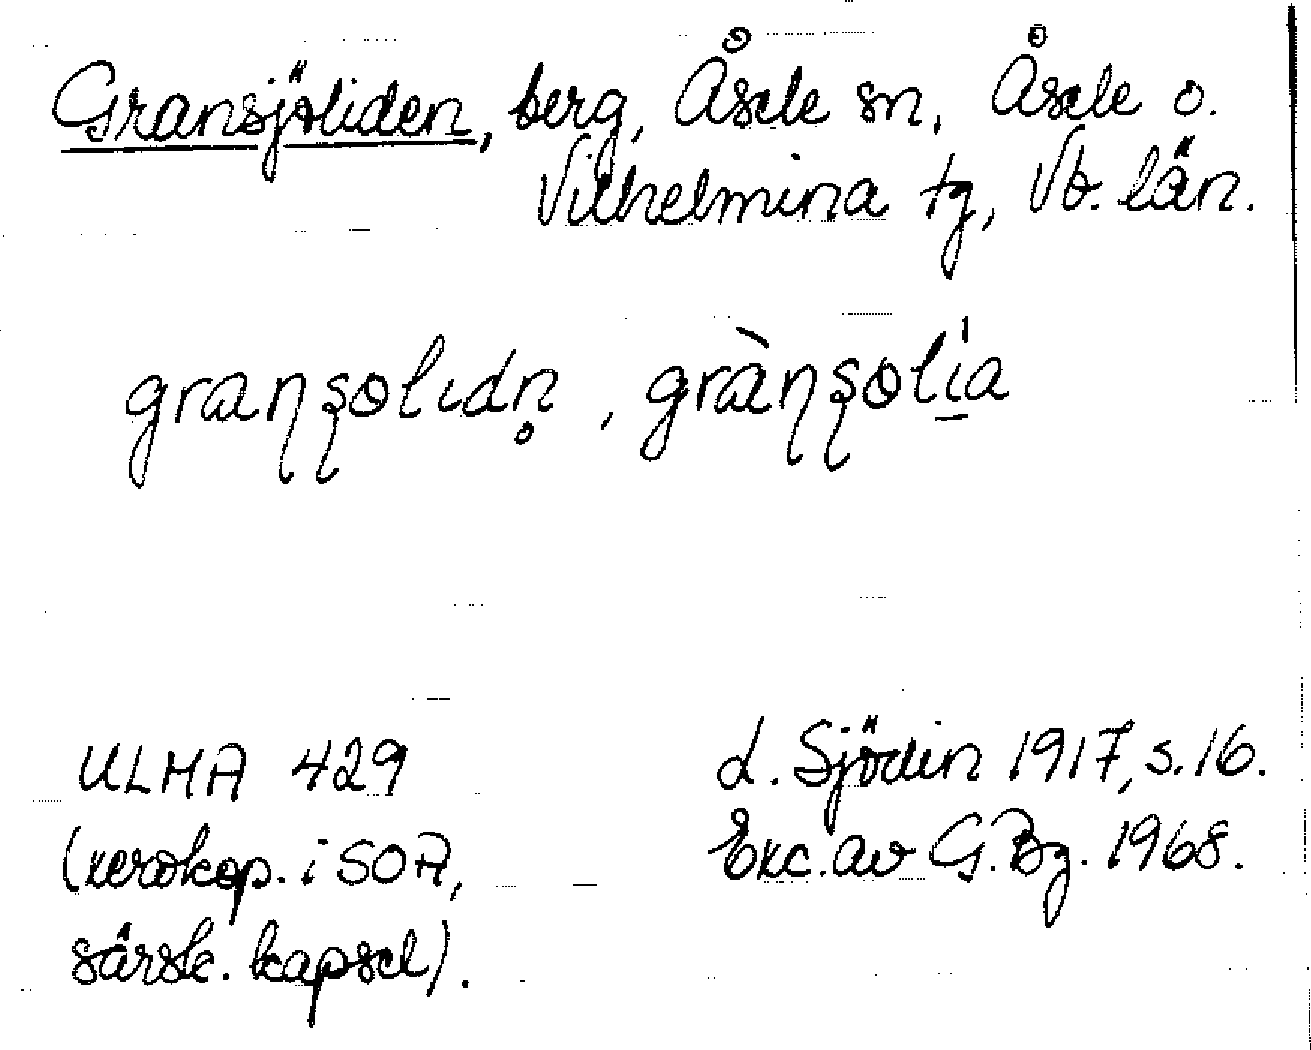 Gransjöliden, berg, Åsele sn, Åsele o.
Vilhelmina tg, Vb. län.
graɳʂolıdn̥, gràɳʂolí̱a
ULMA 429
(xerokop. i SOA,
särsk. kapsel).
L. Sjödin 1917, s. 16.
Exc. av G. Bg. 1968.